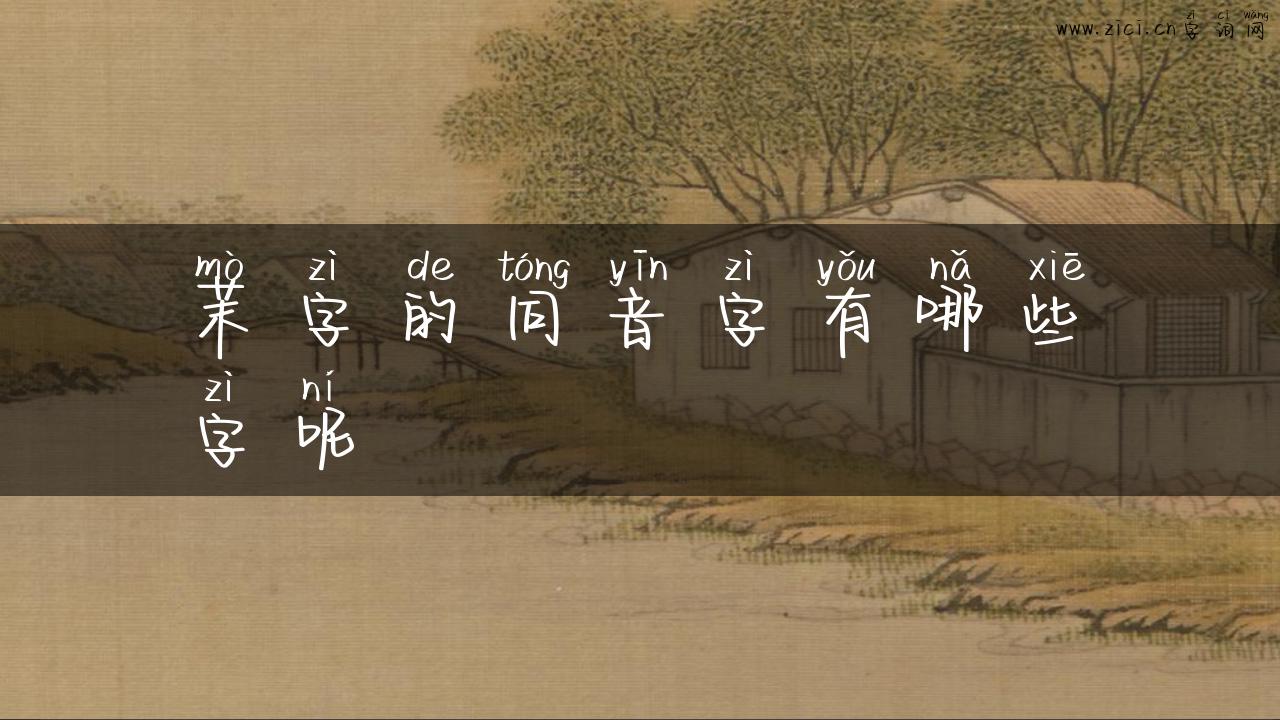 zì cí wǎng
www.zici.cn字词网
mò zì de tóng yīn zì yǒu nǎ xiē
茉字的同音字有哪些
zì ní
字呢